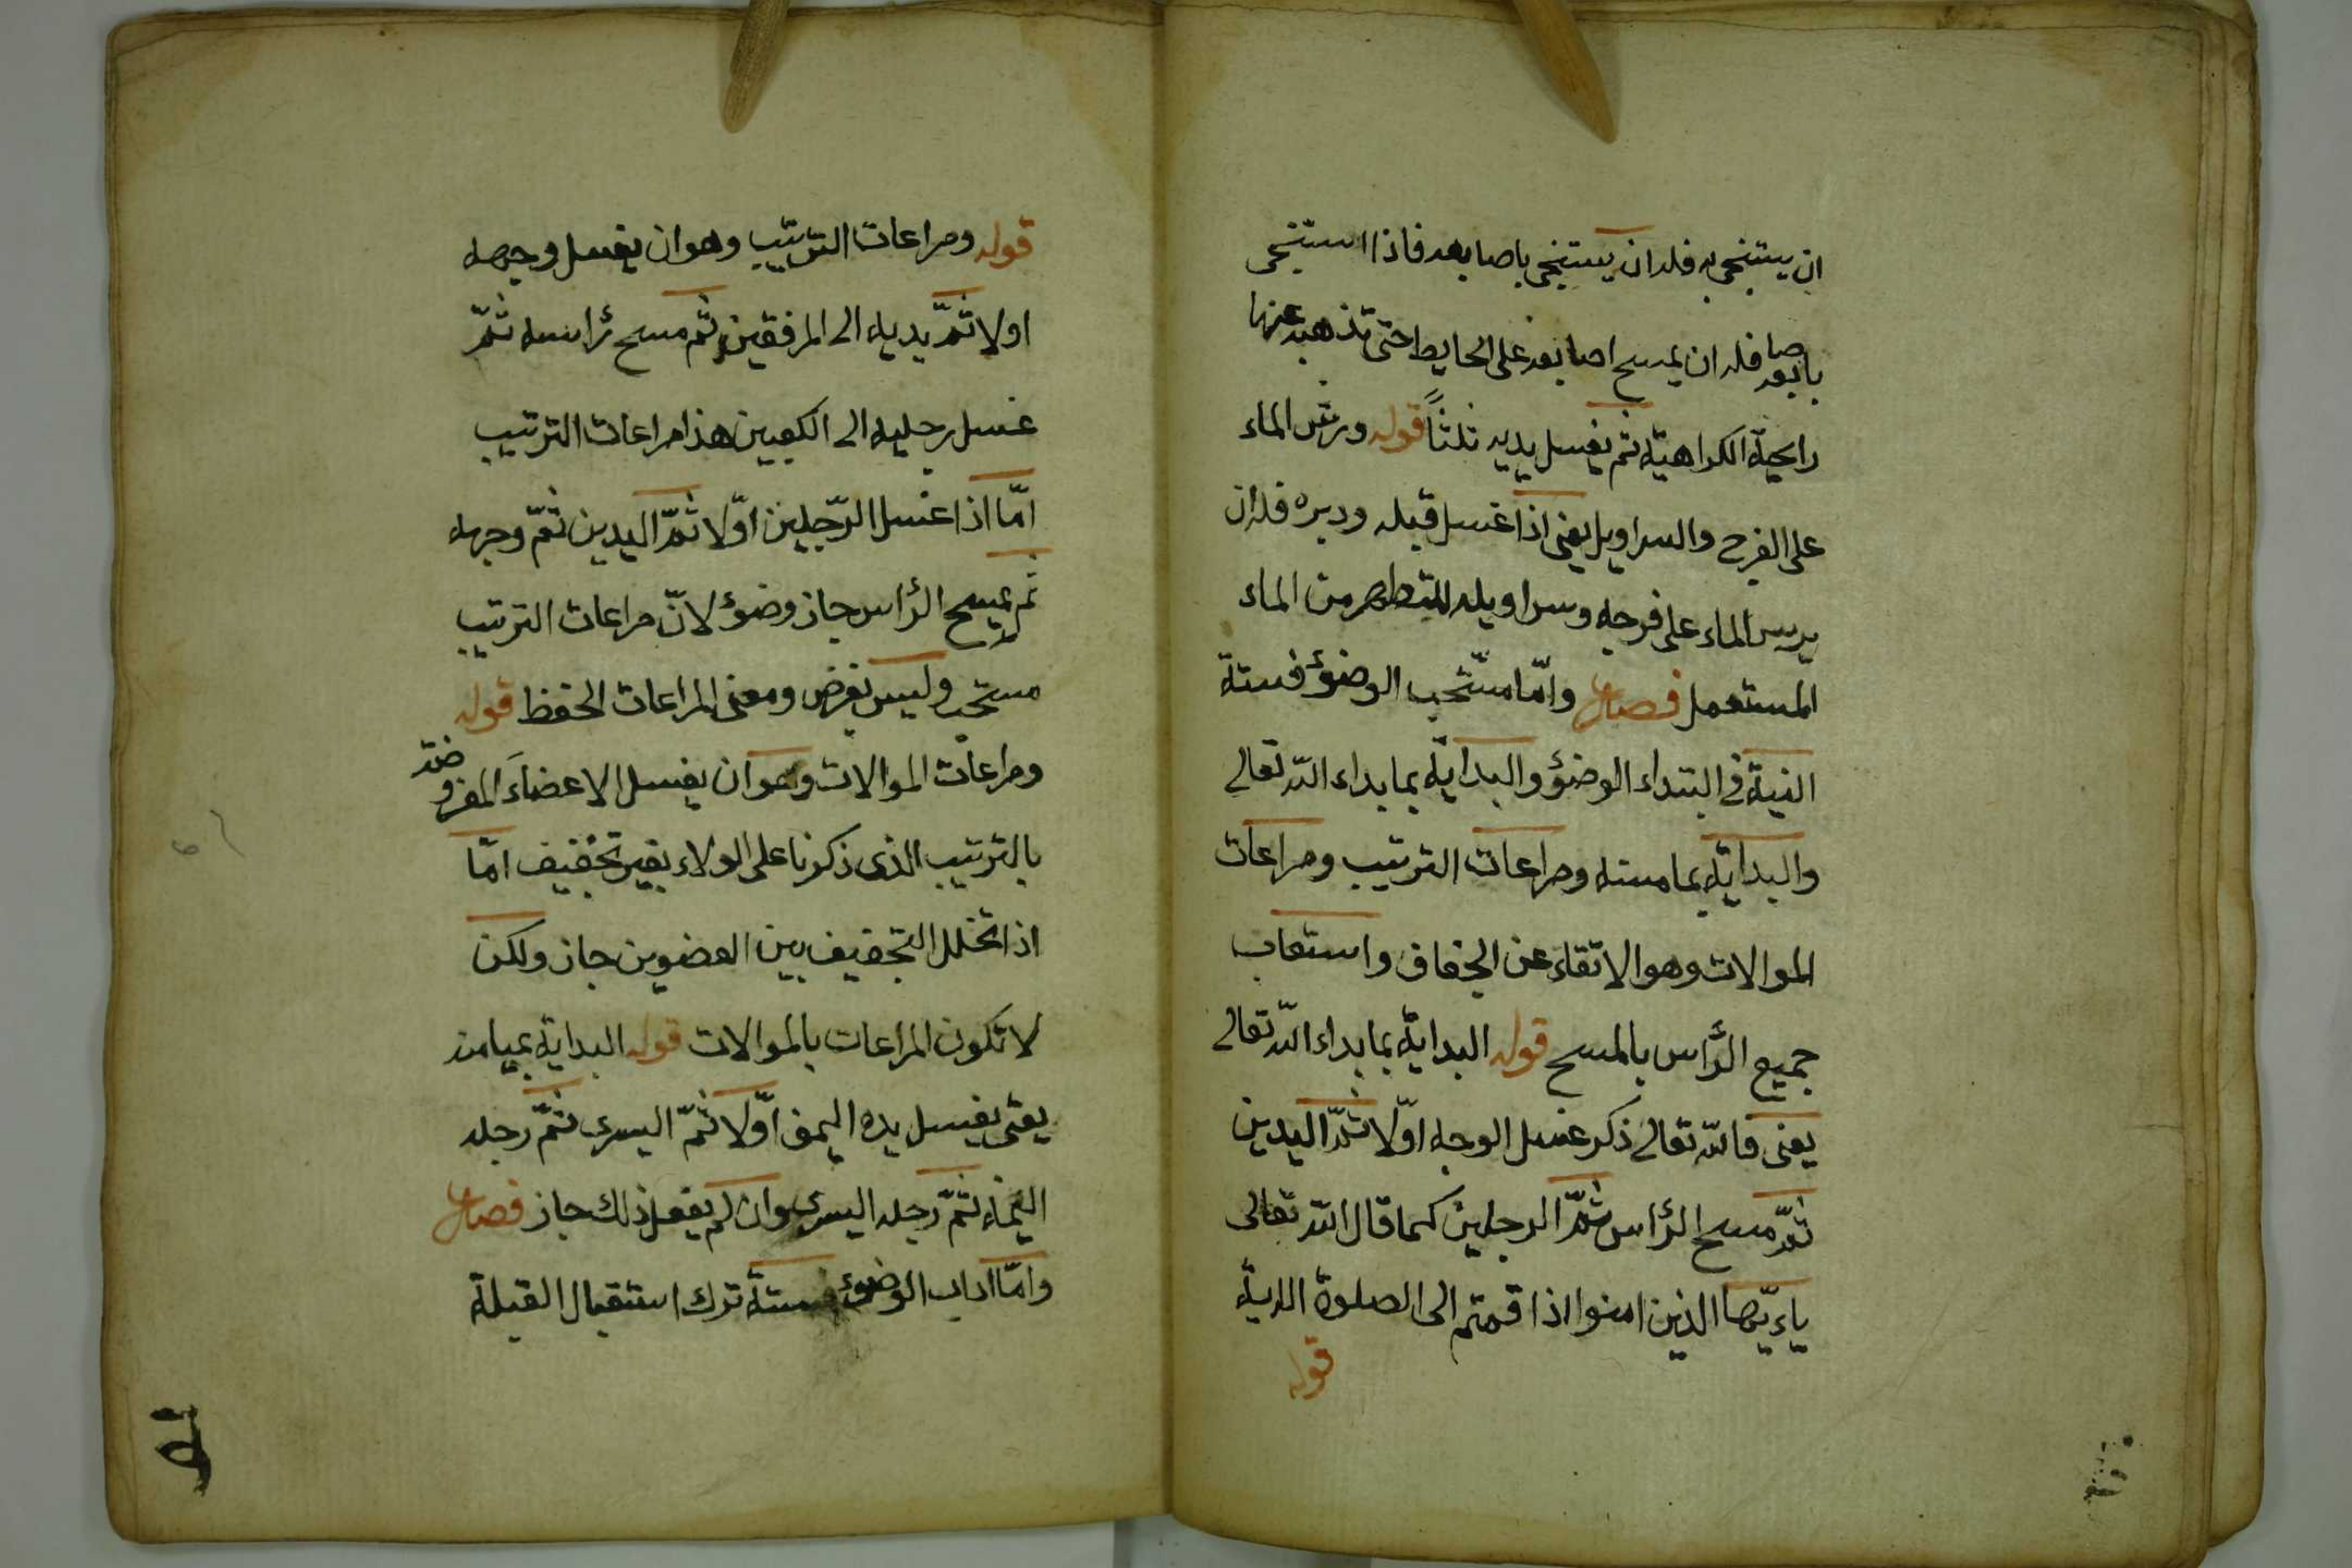 ان يستنجى به فله ان يستنجى باصابعه فاذا استنجى
باصابعه فله ان يمسح اصابعه على الحايط حتى تذهب عنها
رايحة الكراهيّة ثم يغسل يديه ثلثاً قوله ورش الماء
على الفرج والسراويل يعنى اذا غسل قبله ودبره فله ان
يرس الماء على فرجه وسراويله للتطهر من الماء
المستعمل فصل وامّا مستحب الوضؤ فستة
النية فى ابتداء الوضؤ والبداية بما بداء الله تعالى
والبداية بمامنه ومراعات الترتيب ومراعات
الموالات وهو الاتقاء عن الجفاف واستعاب
جميع الرأس بالمسح قوله البداية بما بداء الله تعالى
يعنى فالله تعالى ذكر غسل الوجه اوّلا ثمّ اليدين
ثمّ مسح الرأس ثمّ الرجلين كما قال الله تعالى
ياءيّها الذين امنوا اذا قمتم الى الصلوة الاية
قوله
قوله ومراعات الترتيب وهو ان يغسل وجهه
اولا ثمّ يديه الى المرفقين ثم مسح رأسه ثمّ
غسل رجليه الى الكعبين هذا مراعات الترتيب
امّا اذا غسل الرّجلين اوّلا ثمّ اليدين ثمّ وجهه
ثم يمسح الرأس جاز وضوؤ لانّ مراعات الترتيب
مستحب وليس بفرض ومعنى المراعات الحفظ قوله
ومراعات الموالات وهو ان يغسل الاعضاء المفروضة
بالترتيب الذى ذكرنا على الولاء بغير تجفيف امّا
اذا تخلل التجفيف بين العضوين جاز ولكن
لا تكون المراعات بالموالات قوله البداية بميامنه
يعنى يغسل يده اليمنى اوّلا ثمّ اليسرى ثمّ رجله
اليمنى ثمّ رجله اليسرى وان لم يفعل ذلك جاز فصل
وامّا اداب الوضوء فستة ترك استقبال القبلة